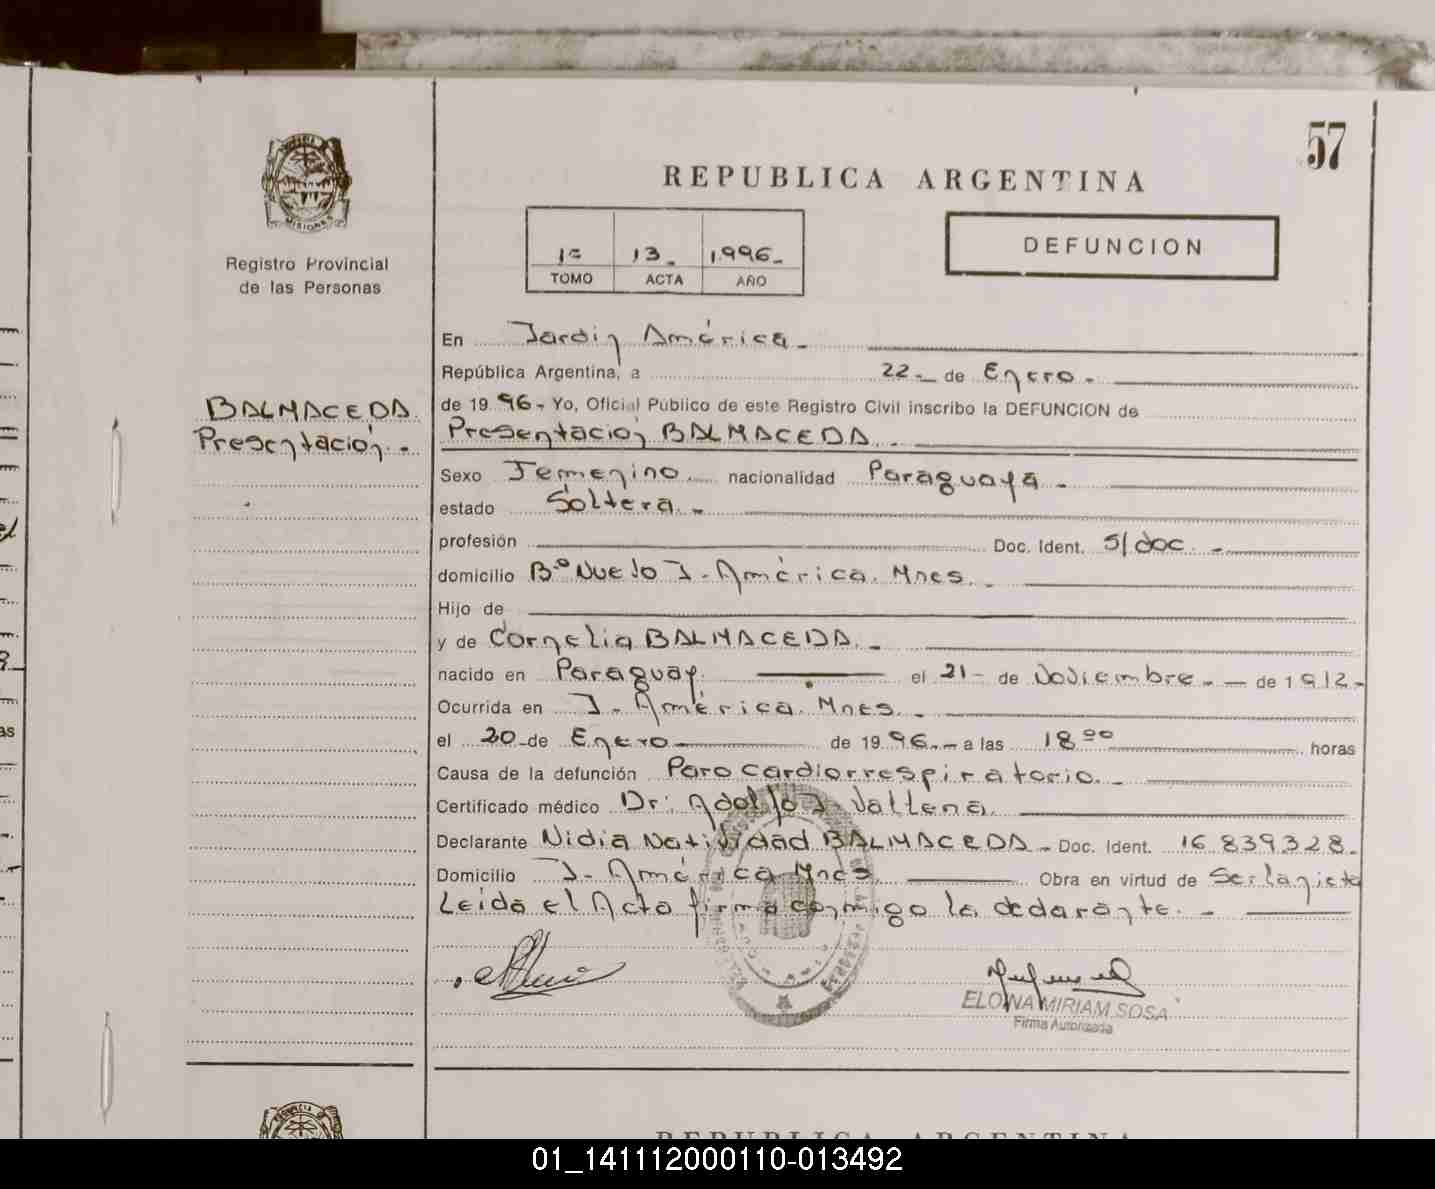 57
REPUBLICA ARGENTINA
MISIONES
Registro Provincial
de las Personas
1º 13_ 1.996_
TOMO ACTA AÑO
DEFUNCION
BALMACEDA
Presentación._
En Jardín América_
República Argentina, a 22_ de Enero_
de 1996_ Yo, Oficial Público de este Registro Civil inscribo la DEFUNCION de
Presentación BALMACEDA._
Sexo Femenino. nacionalidad Paraguaya_
estado Soltera._
profesión Doc. Ident. S/doc._
domicilio Bº Nuevo J. América. Mnes._
Hijo de
y de Cornelia BALMACEDA._
nacido en Paraguay. el 21- de Noviembre._ de 1912-
Ocurrida en J. América. Mnes._
el 20- de Enero de 1996._ a las 18ºº horas
Causa de la defunción Paro cardiorrespiratorio._
Certificado médico Dr: Adolfo J. Vallena
Declarante Nidia Natividad BALMACEDA_ Doc. Ident. 16 839328_
Domicilio J. América Mnes. Obra en virtud de Ser la nieta
Leida el Acta firma conmigo la declarante._
ELOINA MIRIAM SOSA
Firma Autorizada
REPUBLICA ARGENTINA
01_141112000110-013492